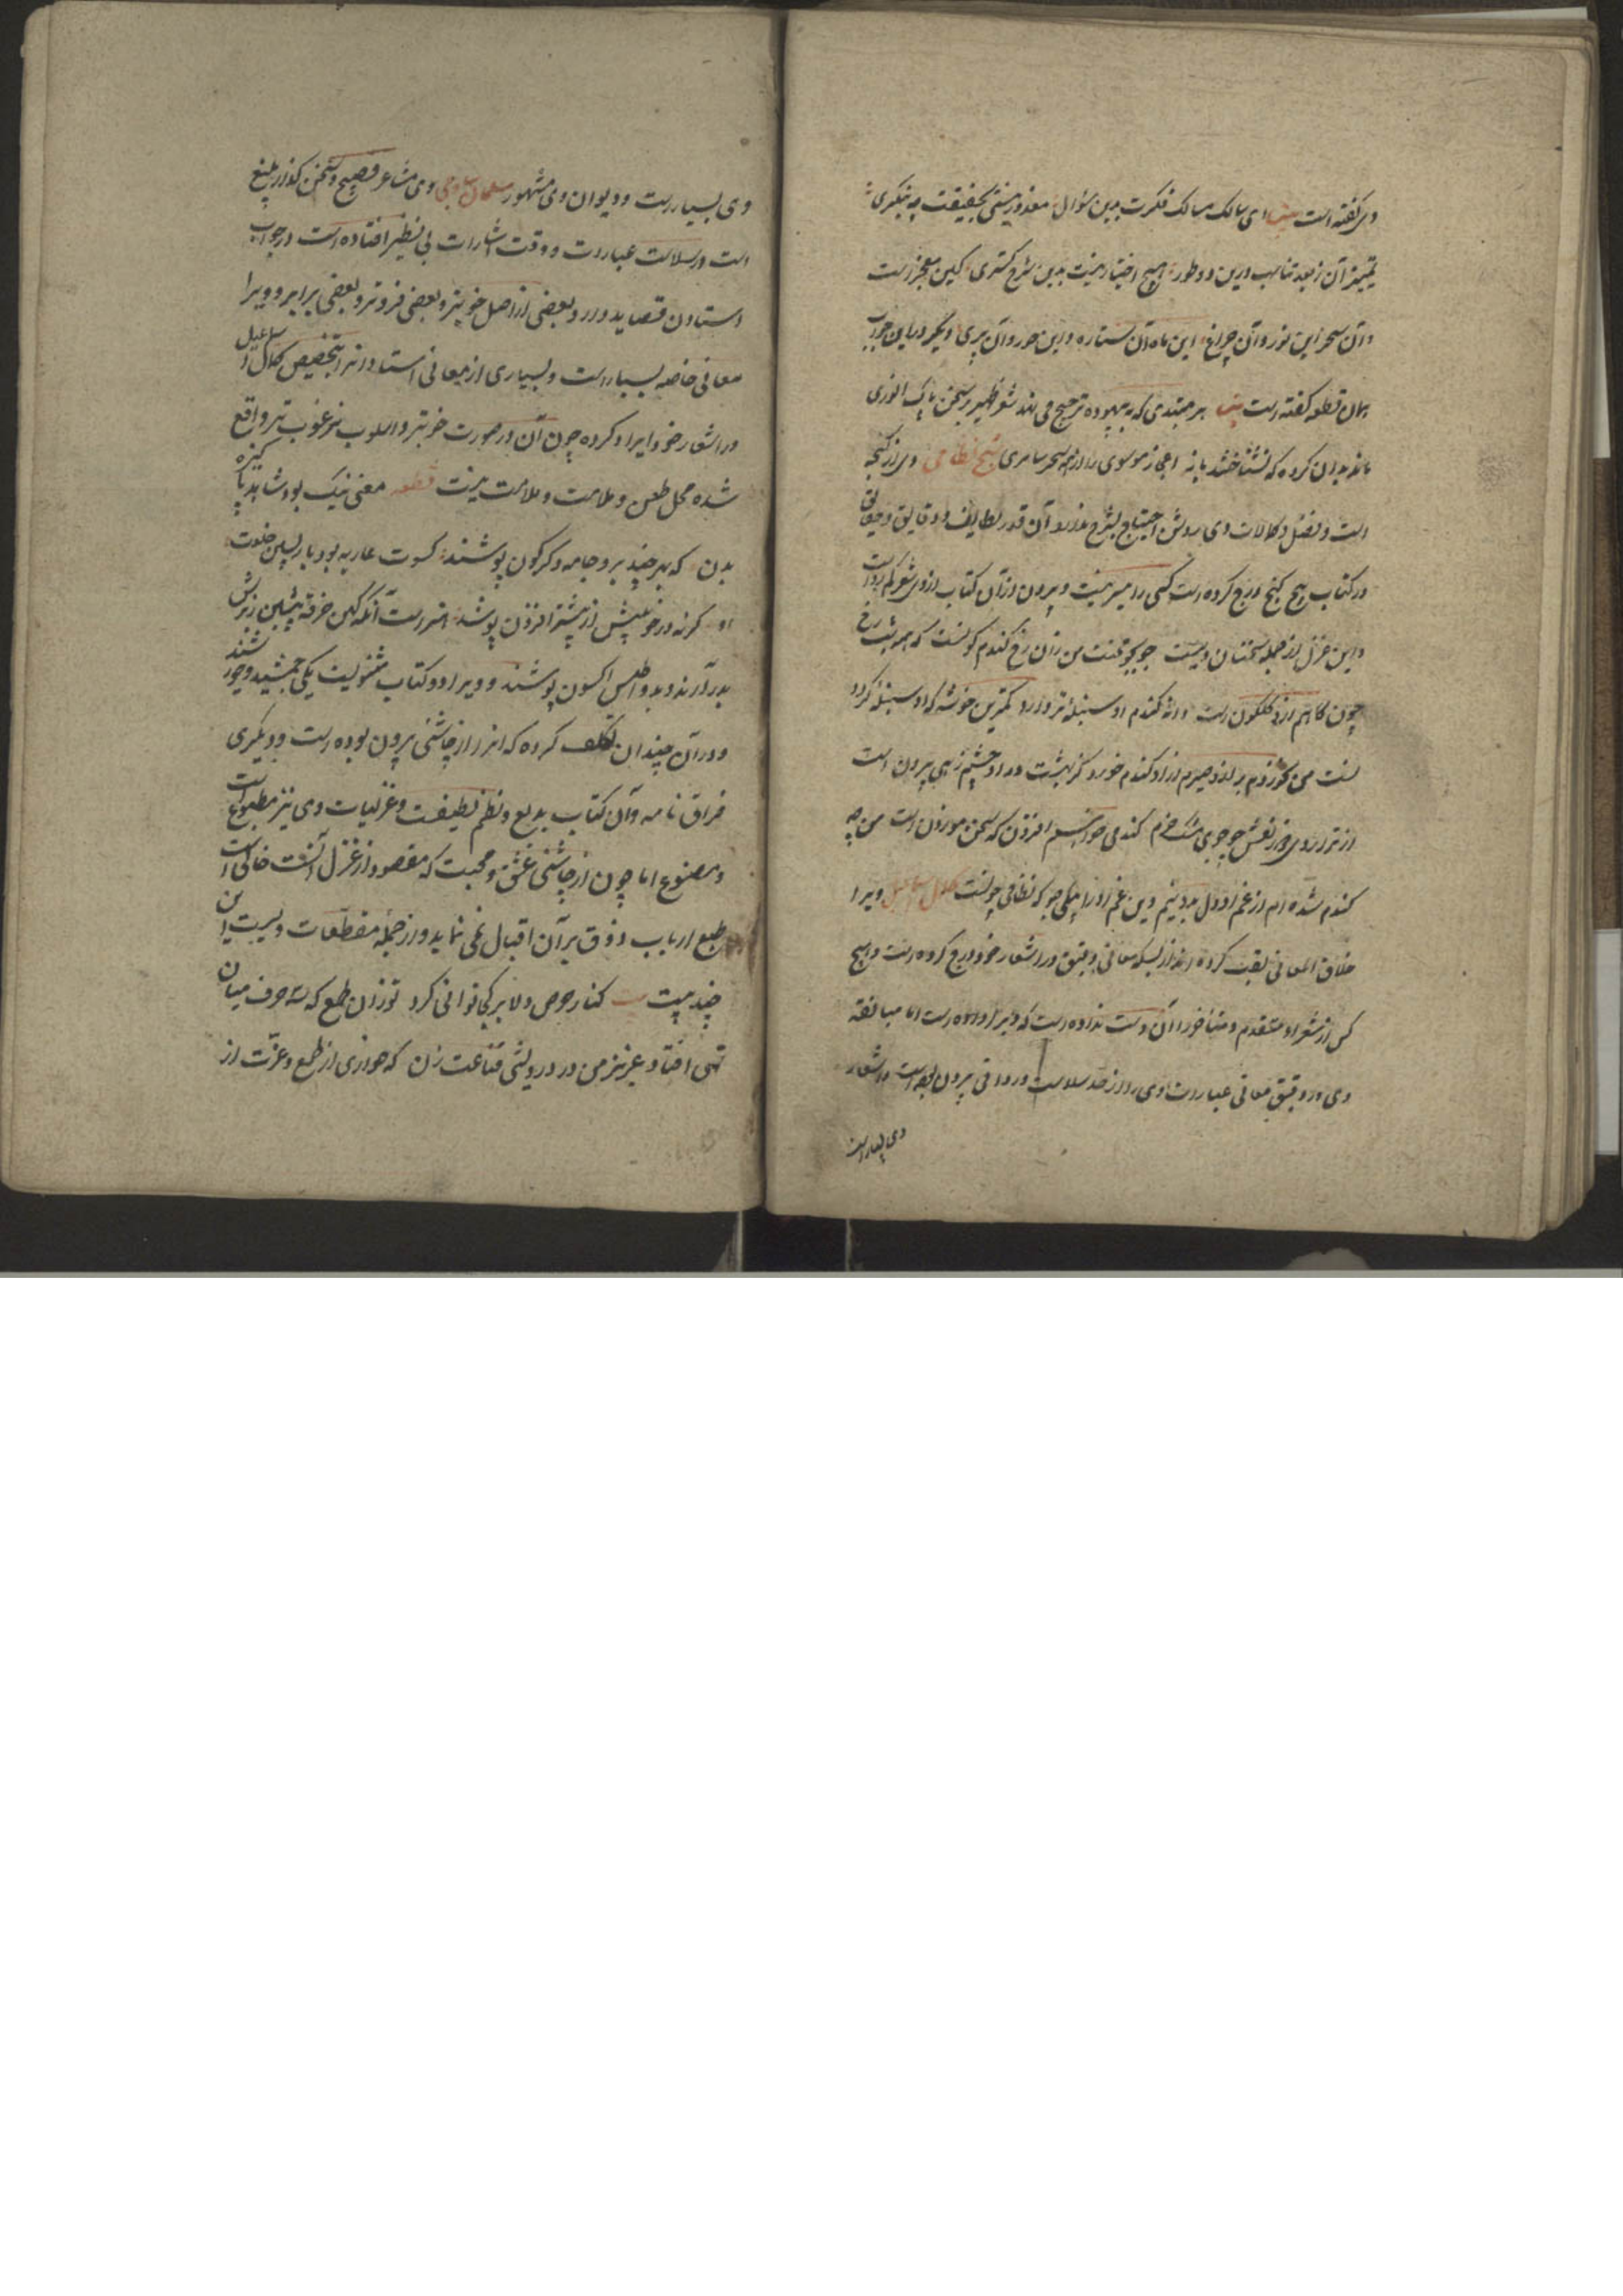 وی گفته است بیت ای سالک مسالک فکرت بدین سؤال معذور نیستی بحقیقت چه بنگری
تمییز آن ز بعد تناسب درین دو طور هیچ اختیار نیست بدین شرح گستری کین معجزست
و آن سحر این نور و آن چراغ این ماه آن ستاره و این حور و آن پری و دیگر در این جواب
همان قطعه گفته است بیت هر مبتدی که بیهوده ترجیح می نهد شعر ظهیر بر سخن پاک انوری
ماند بدان گروه که نشناختند باز اعجاز موسوی را از سحر سامری شیخ نظامی وی از گنجه
است و فضل و کمالات وی روشن احتیاج بشرح ندارد آن قدر لطایف و دقایق و حقایق
در کتاب پنج گنج درج کرده است کسی را میسر نیست و بیرون از آن کتاب از وی شعر کم روایت
و این غزل از جمله سخنان ویست جو بجو محنت من زان رخ گندم گونست که همه شب رخ
چون کاهم ازو گلگون است دانه گندم او سنبله تر دارد کمترین خوشه که او سنبله گردد
از ترازوی وز نقش جوجوی مشک خرم گندمی خواستم افزون که سخن موزون است من چه
گندم شده ام از غم او دل بدو نیم وین غم او را بیکی جو که نظامی چونست کمال اسماعیل ویرا
خلاق المعانی لقب کرده اند از بسکه معانی دقیق در اشعار خود درج کرده است و هیچ
کس از شعراء متقدم و متأخر را آن دست نداده است که ویرا داده است اما مبالغه
وی در دقیق معانی عبارت وی را از حد سلاست و روانی بیرون برده است و اشعار
وی بسیار است
وی بسیارست و دیوان وی مشهور سلمان ساوجی وی شاعر فصیح و سخن گذار بلیغ
است در سلاست عبارت و دقت اشارت بی نظیر افتاده است در جواب
استادان قصاید دارد و بعضی از اصل خوبتر و بعضی فروتر و بعضی برابر و ویرا
معانی خاصه بسیار است و بسیاری از معانی استادانرا بتخصیص کمال اسماعیل
در اشعار خود ایراد کرده چون آن در صورت خوبتر و اسلوب مرغوب تر واقع
شده محل طعن و ملامت و ملامت نیست قطعه معنی نیک بود شاهد پاکیزه
بدن که بهر چند برو جامه دگرگون پوشند کسوت عار بود باز پسین خلعت
او گر نه در خوبیش از پیشتر افزون پوشند هنرست آنکه کهن خرقه پشمین ز برش
بدر آرند و بدو اطلس اکسون پوشند و ویرا دو کتاب مثنویست یکی جمشید و خورشید
و در آن چندان تکلف کرده که آنرا از چاشنی بیرون برده است و دیگری
فراق نامه و آن کتاب بدیع و نظم لطیفست و غزلیات وی نیز مطبوع است
و مصنوع اما چون از چاشنی عشق و محبت که مقصود از غزل آنست خالی است
طبع ارباب ذوق بر آن اقبال نمی نماید و از جمله مقطعات ویست این
چند بیت کنار حرص دلا پر کی توانی کرد تو زان طمع که سه حرف میان
تهی افتاد عزیز من در درویشی قناعت زن که خواری از طمع و عزت از